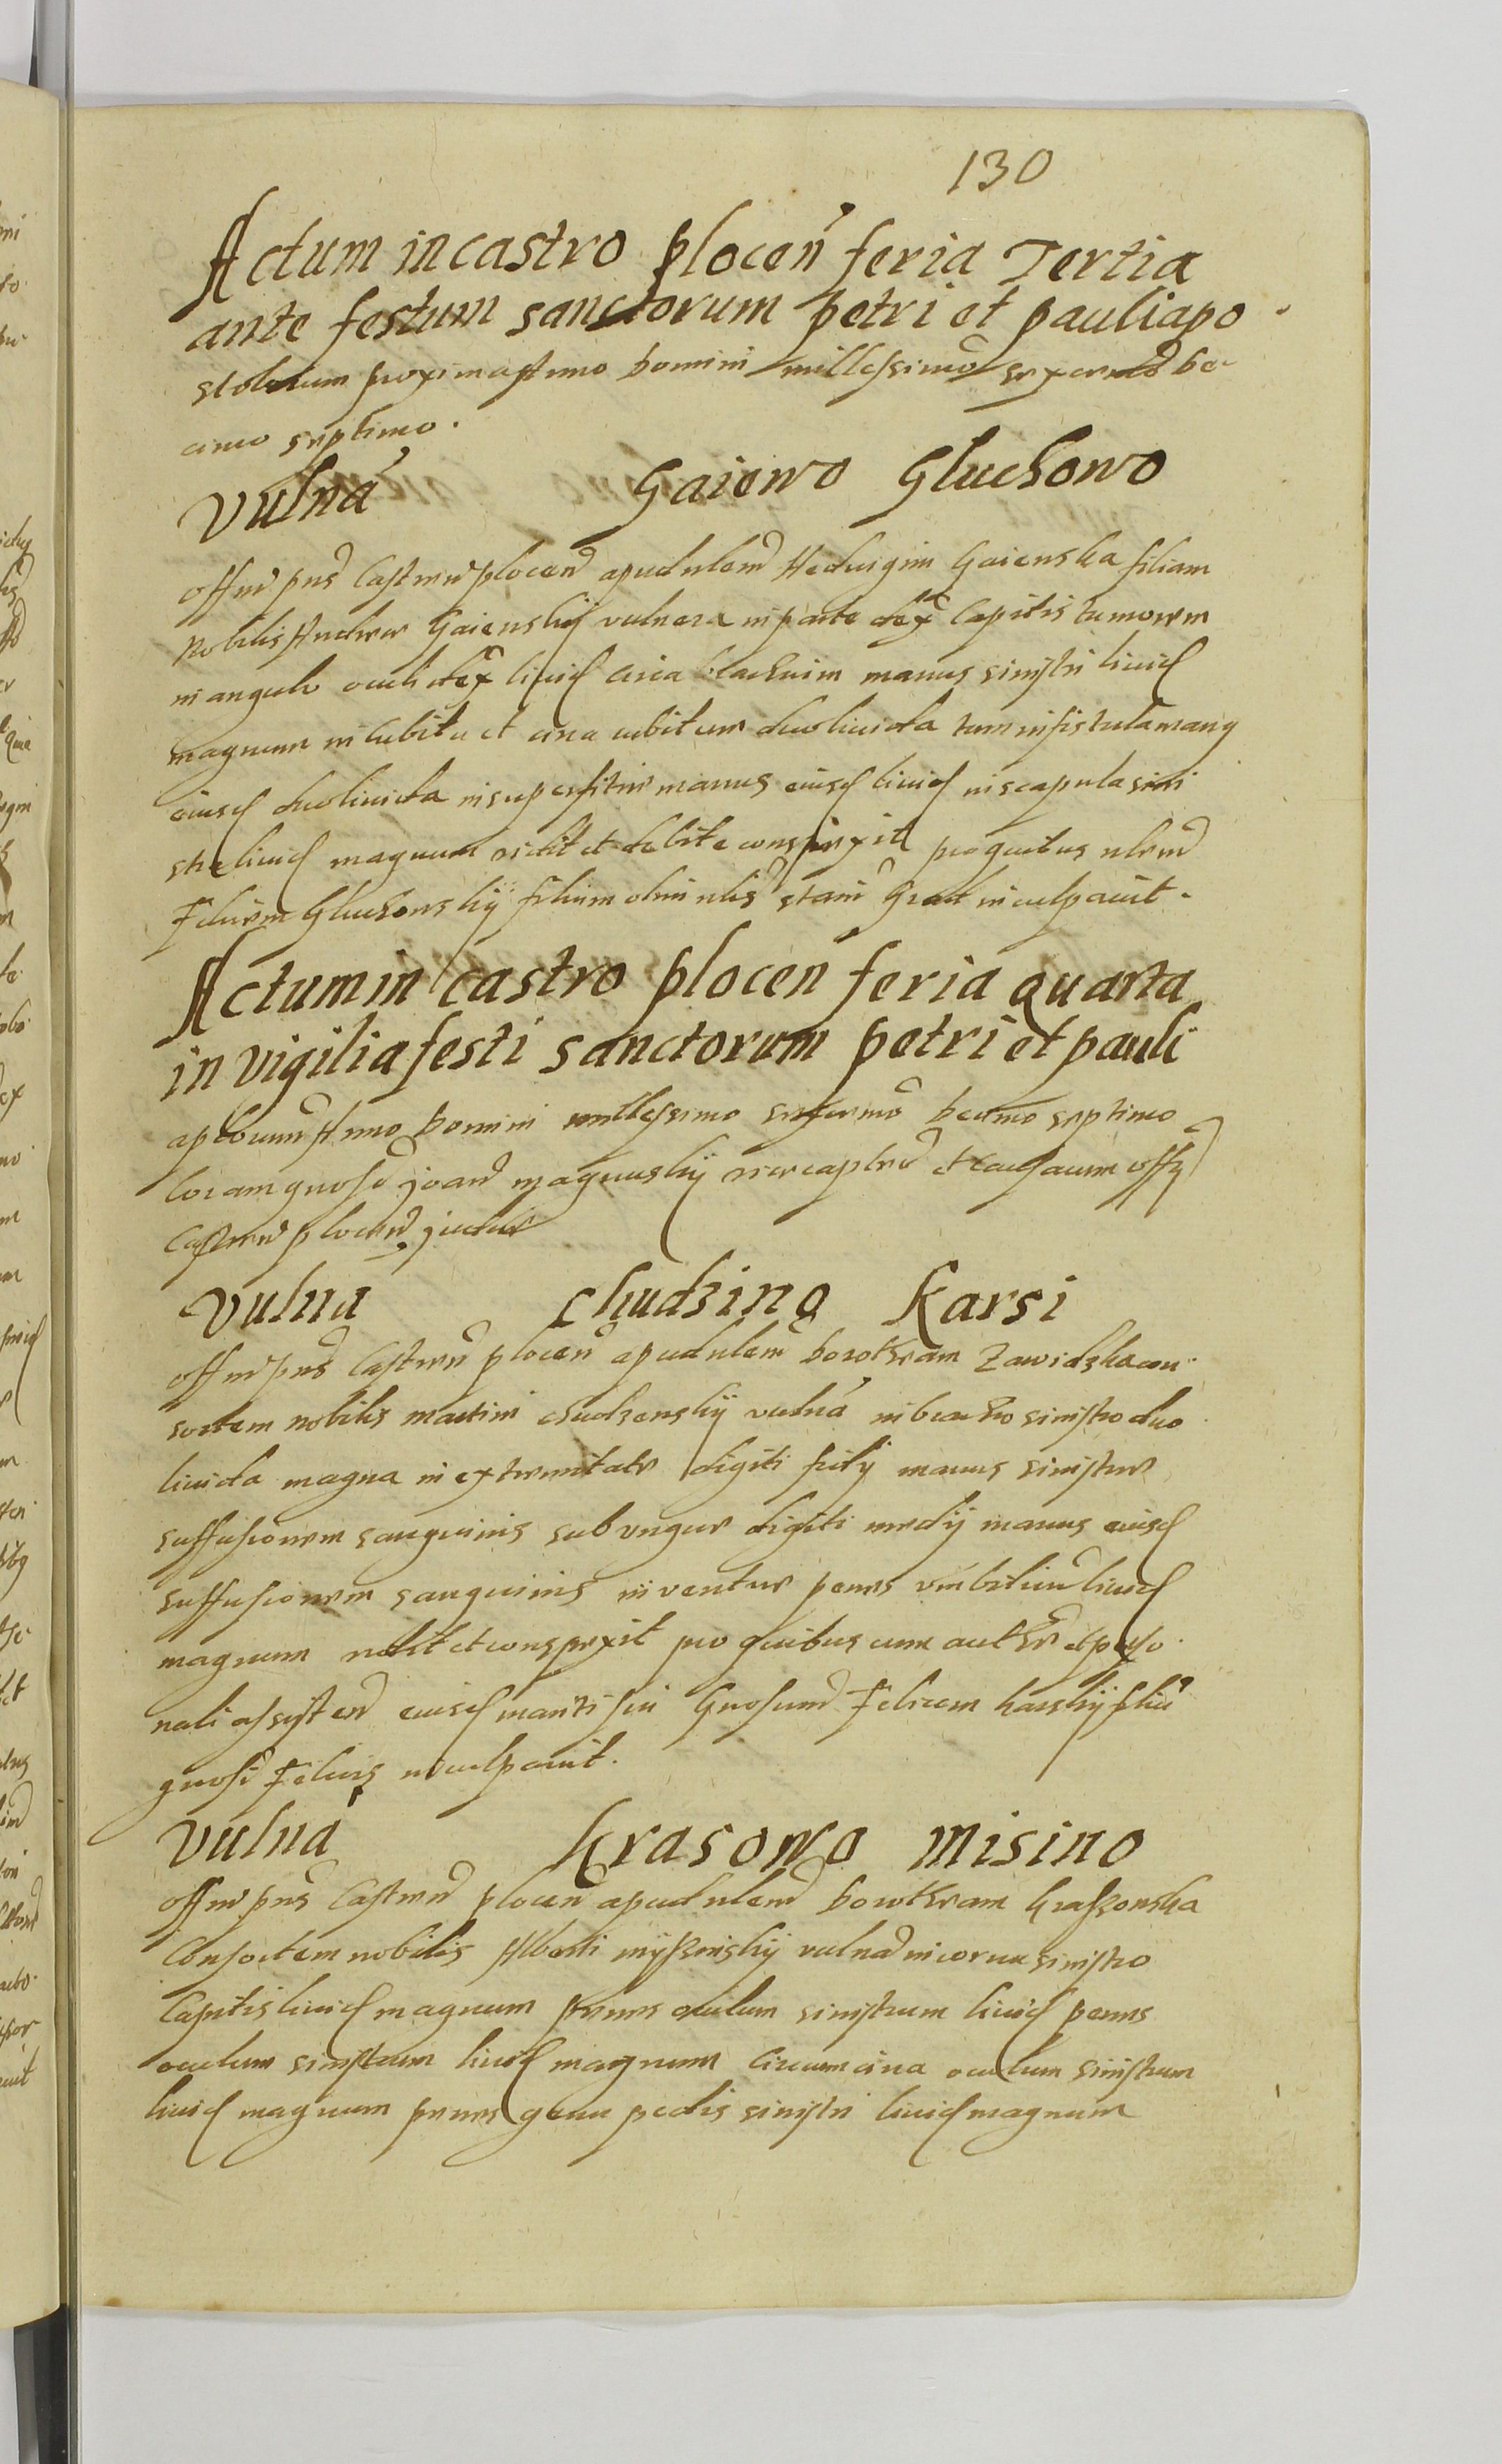 130
Actum in castro plocen feria Tertia
ante festum sanctorum petri et pauli apo
stolorum proxima Anno Domini millessimo sexcentmo de
cimo septimo.
Vulna Gaiewo Gluchowo
Offm pns Castren plocen apud nlem Hedvigim Gaiewska filiam
Nobilis Andree Gaiewskij vulnera in parte dex Capitis tumorem
in angulo oculi dex livid circa brachium manus sinistri livid
magnum in cubitu et circa cubitum duo livida tum in fistula manq
eiusd duo livida in superfitie manus eiusd livid in scapula sini
stra livid magnum vidit et debite conspexit pro quibus nlem
Felicem Gluchowskij filium olim nlis stani Grad inculpavit.
Actum in castro plocen feria quarta
in vigilia festi sanctorum petri et pauli
aplorum Anno Domini millessimo sexcenmo decimo septimo
Coram gnoso Joan magnuskij vicecaptneo et causarum offy
Castren plocen judice
Vulna Chudzino Karsi
Offm pns Castren plocen apud nlem Dorotheam Zawidzka con
sortem nobilis Martini chudzenskij vulna in brachio sinistro duo
livida magna in extremitate digiti manus sinistre
suffusionem sanguinis sub ungue digiti medij manus eiusd
suffusionem sanguinis in ventre penes umbilicu livid
magnum vidit et conspexit pro quibus cum authe et perso
nali assisten eiusd mariti sui Gnosum Felicem karskij filiu
gnosi Felicis inculpavit.
Vulna Krasowo Misino
Offm pns Castren plocen apud nlem Dorotheam Kraszowska
Consortem nobilis Alberti myszinskij vulna in cornu sinistro
Capitis livid magnum penes oculum sinistrum livid penes
oculum sinistrum livid magnum circumcirca oculum sinistrum
livid magnum penes genu pedis sinistri livid magnum